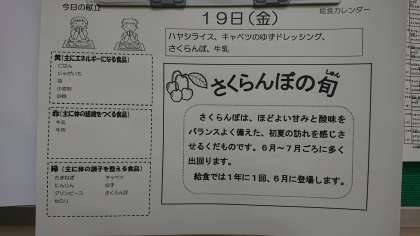 今日の献立
給食カレンダー
19日(金)
ハヤシライス、キャベツのゆずドレッシング、
さくらんぼ、牛乳
黄(主にエネルギーになる食品)
ごはん
じゃがいも
油
小麦粉
砂糖
赤(主に体の組織をつくる食品)
牛乳
牛肉
緑(主に体の調子を整える食品)
たまねぎ キャベツ
にんじん ゆず
グリンピース さくらんぼ
セロリ
さくらんぼの旬
しゅん
さくらんぼは、ほどよい甘みと酸味を
バランスよく備えた、初夏の訪れを感じさ
せるくだものです。6月~7月ごろに多く
出回ります。
給食では1年に1回、6月に登場します。